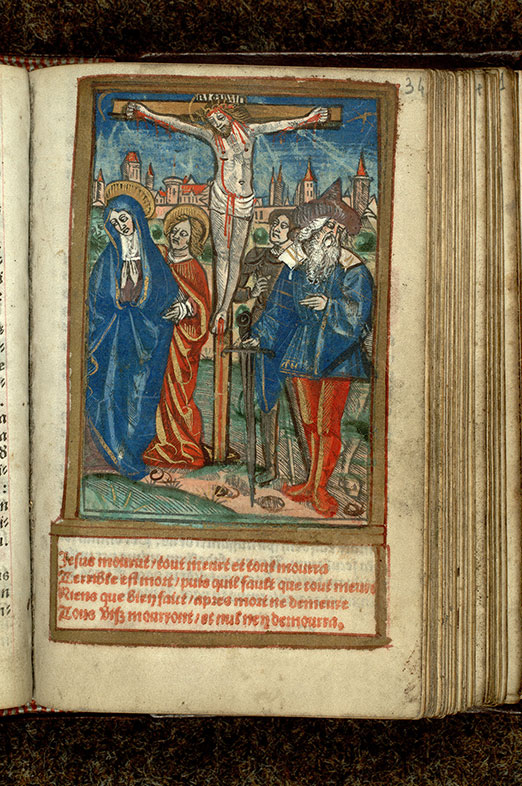 34
Jesus mourut / tout meurt et tout mourra
Terrible est mort / puis quil fault que tout meure
Riens que bien faict / apres mort ne demeure
Tous vifz mourront / et nul ney demourra.